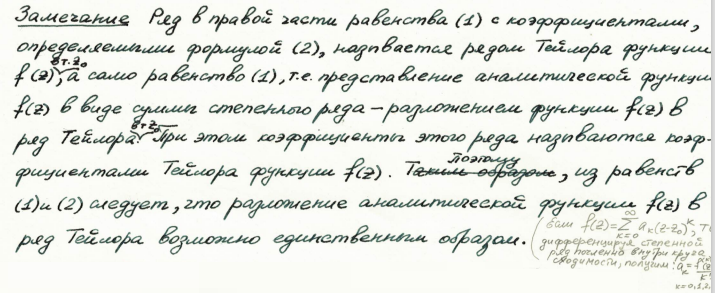 Замечание Ряд в правой части равенства (1) с коэффициентами,
определяемыми формулой (2), называется рядом Тейлора функции
в т. z₀
f(z), а само равенство (1), т.е. представление аналитической функции
f(z) в виде суммы степенного ряда – разложением функции f(z) в
в т. z₀
ряд Тейлора. При этом коэффициенты этого ряда называются коэф-
Поэтому
фициентами Тейлора функции f(z). Таким образом, из равенств
(1) и (2) следует, что разложение аналитической функции f(z) в
ряд Тейлора возможно единственным образом.
(если f(z)=∑_{k=0}^{∞} a_k(z-z₀)^k, то
дифференцируя степенной
ряд почленно внутри круга
сходимости, получим: a_k =
k=0,1,2,